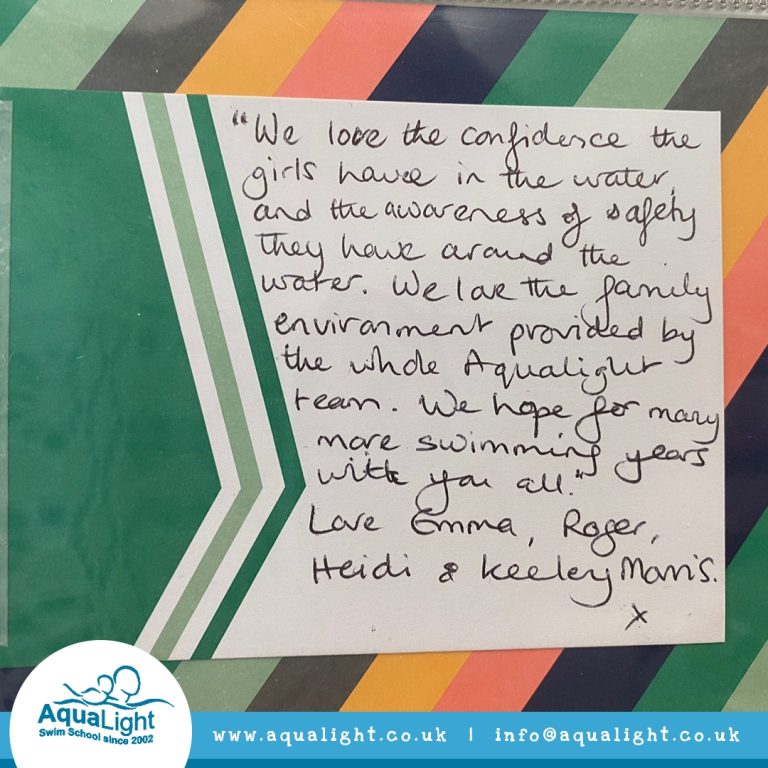 “We love the confidence the
girls have in the water,
and the awareness of safety
they have around the
water. We love the family
environment provided by
the whole Aqualight
team. We hope for many
more swimming years
with you all."
Love Emma, Roger,
Heidi & Keeley Morris.
x
AquaLight
Swim School since 2002
www.aqualight.co.uk | info@aqualight.co.uk